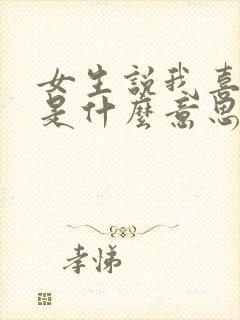 女生說我喜
是什麼意思
孝悌